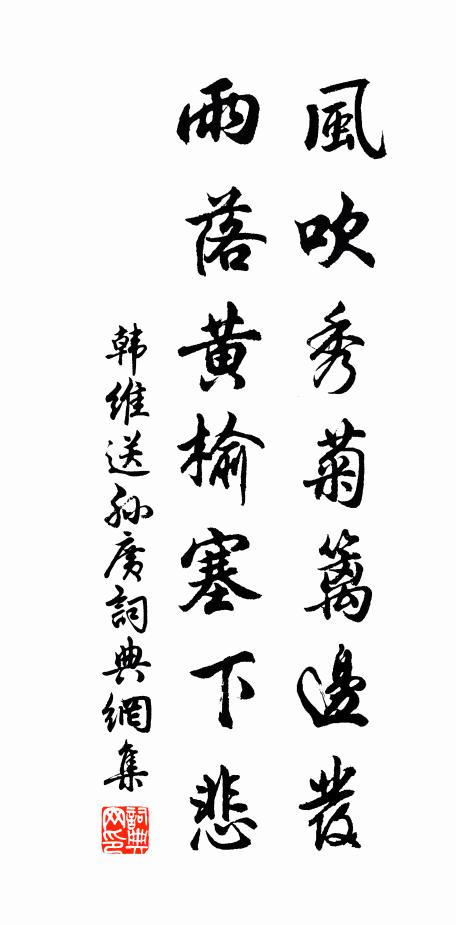 風吹秀菊籬邊發
雨落黄榆塞下悲
韩維送孙廣詞典網集
詞典网印